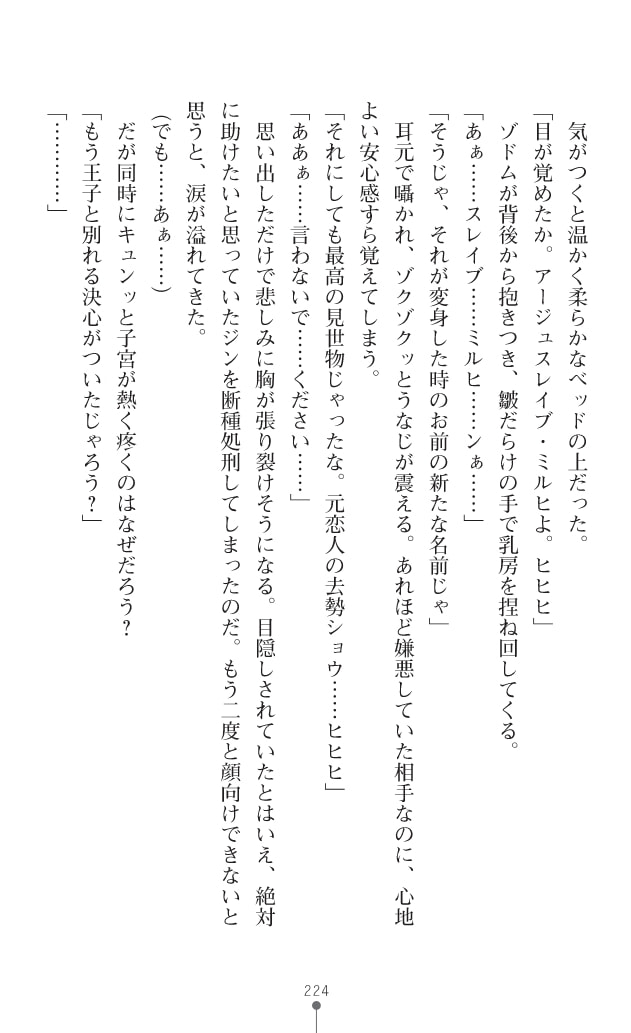 気がつくと温かく柔らかなベッドの上だった。
「目が覚めたか。アージュスレイブ・ミルヒよ。ヒヒヒ」
ゾドムが背後から抱きつき、皺だらけの手で乳房を捏ね回してくる。
「あぁ……スレイブ……ミルヒ……ンぁ……」
「そうじゃ、それが変身した時のお前の新たな名前じゃ」
耳元で囁かれ、ゾクゾクッとうなじが震える。あれほど嫌悪していた相手なのに、心地
よい安心感すら覚えてしまう。
「それにしても最高の見世物じゃったな。元恋人の去勢ショウ……ヒヒヒ」
「ああぁ……言わないで……ください……」
思い出しただけで悲しみに胸が張り裂けそうになる。目隠しされていたとはいえ、絶対
に助けたいと思っていたジンを断種処刑してしまったのだ。もう二度と顔向けできないと
思うと、涙が溢れてきた。
（でも……あぁ……）
だが同時にキュンッと子宮が熱く疼くのはなぜだろう？
「もう王子と別れる決心がついたじゃろう？」
「…………」
224